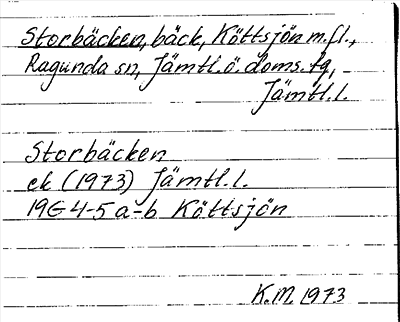 Storbäcken, bäck, Köttsjön m.fl.,
Ragunda sn, Jämtl.ö.doms.fg,
Jämtl.l.
Storbäcken
ek (1973) Jämtl.l.
19G 4-5 a-b Köttsjön
K.M. 1973